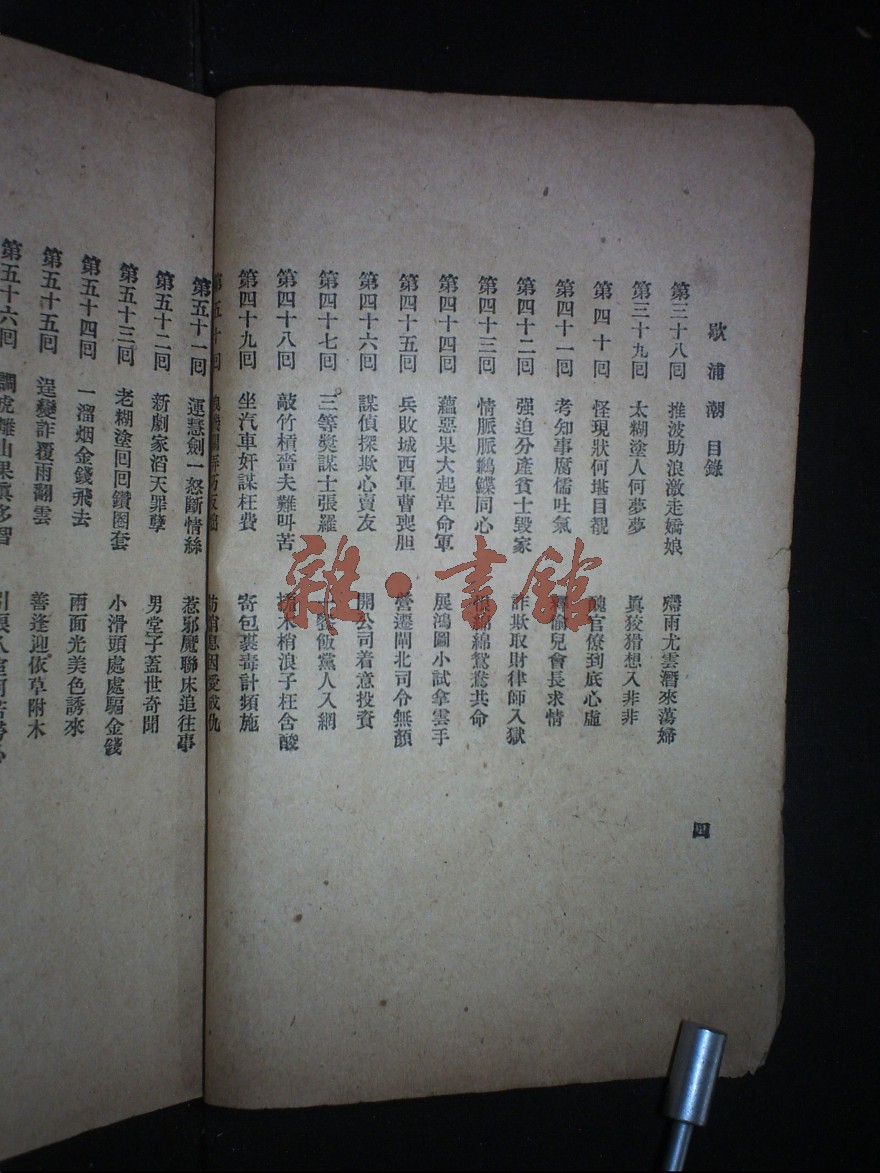 歇浦潮目錄
第三十八回 推波助浪激走嬌娘 殢雨尤雲潛來蕩婦
第三十九回 太糊塗人何夢夢 眞狡猾想入非非
第四十回 怪現狀何堪目覩 醜官僚到底心虛
第四十一回 考知事腐儒吐氣 兒會長求情
第四十二回 强迫分產貧士毀家 詐欺取財律師入獄
第四十三回 情脈脈鶼鰈同心 綿鴛鴦共命
第四十四回 蘊惡果大起革命軍 展鴻圖小試拿雲手
第四十五回 兵敗城西軍曹喪胆 營遷閘北司令無顏
第四十六回 謀偵探欺心賣友 開公司着意投資
第四十七回 三等獎謀士張羅 飯黨人入網
第四十八回 敲竹槓嗇夫難叫苦 掮木梢浪子枉含酸
第四十九回 坐汽車奸謀枉費 寄包裹毒計頻施
第五十回 息因愛成仇
第五十一回 運慧劍一怒斷情絲 惹邪魔聯床追往事
第五十二回 新劇家滔天罪孽 男堂子蓋世奇聞
第五十三回 老糊塗回回鑽圈套 小滑頭處處騙金錢
第五十四回 一溜烟金錢飛去 兩面光美色誘來
第五十五回 逞變詐覆雨翻雲 善逢迎依草附木
第五十六回 調虎離山果眞多智
四
雜·書館